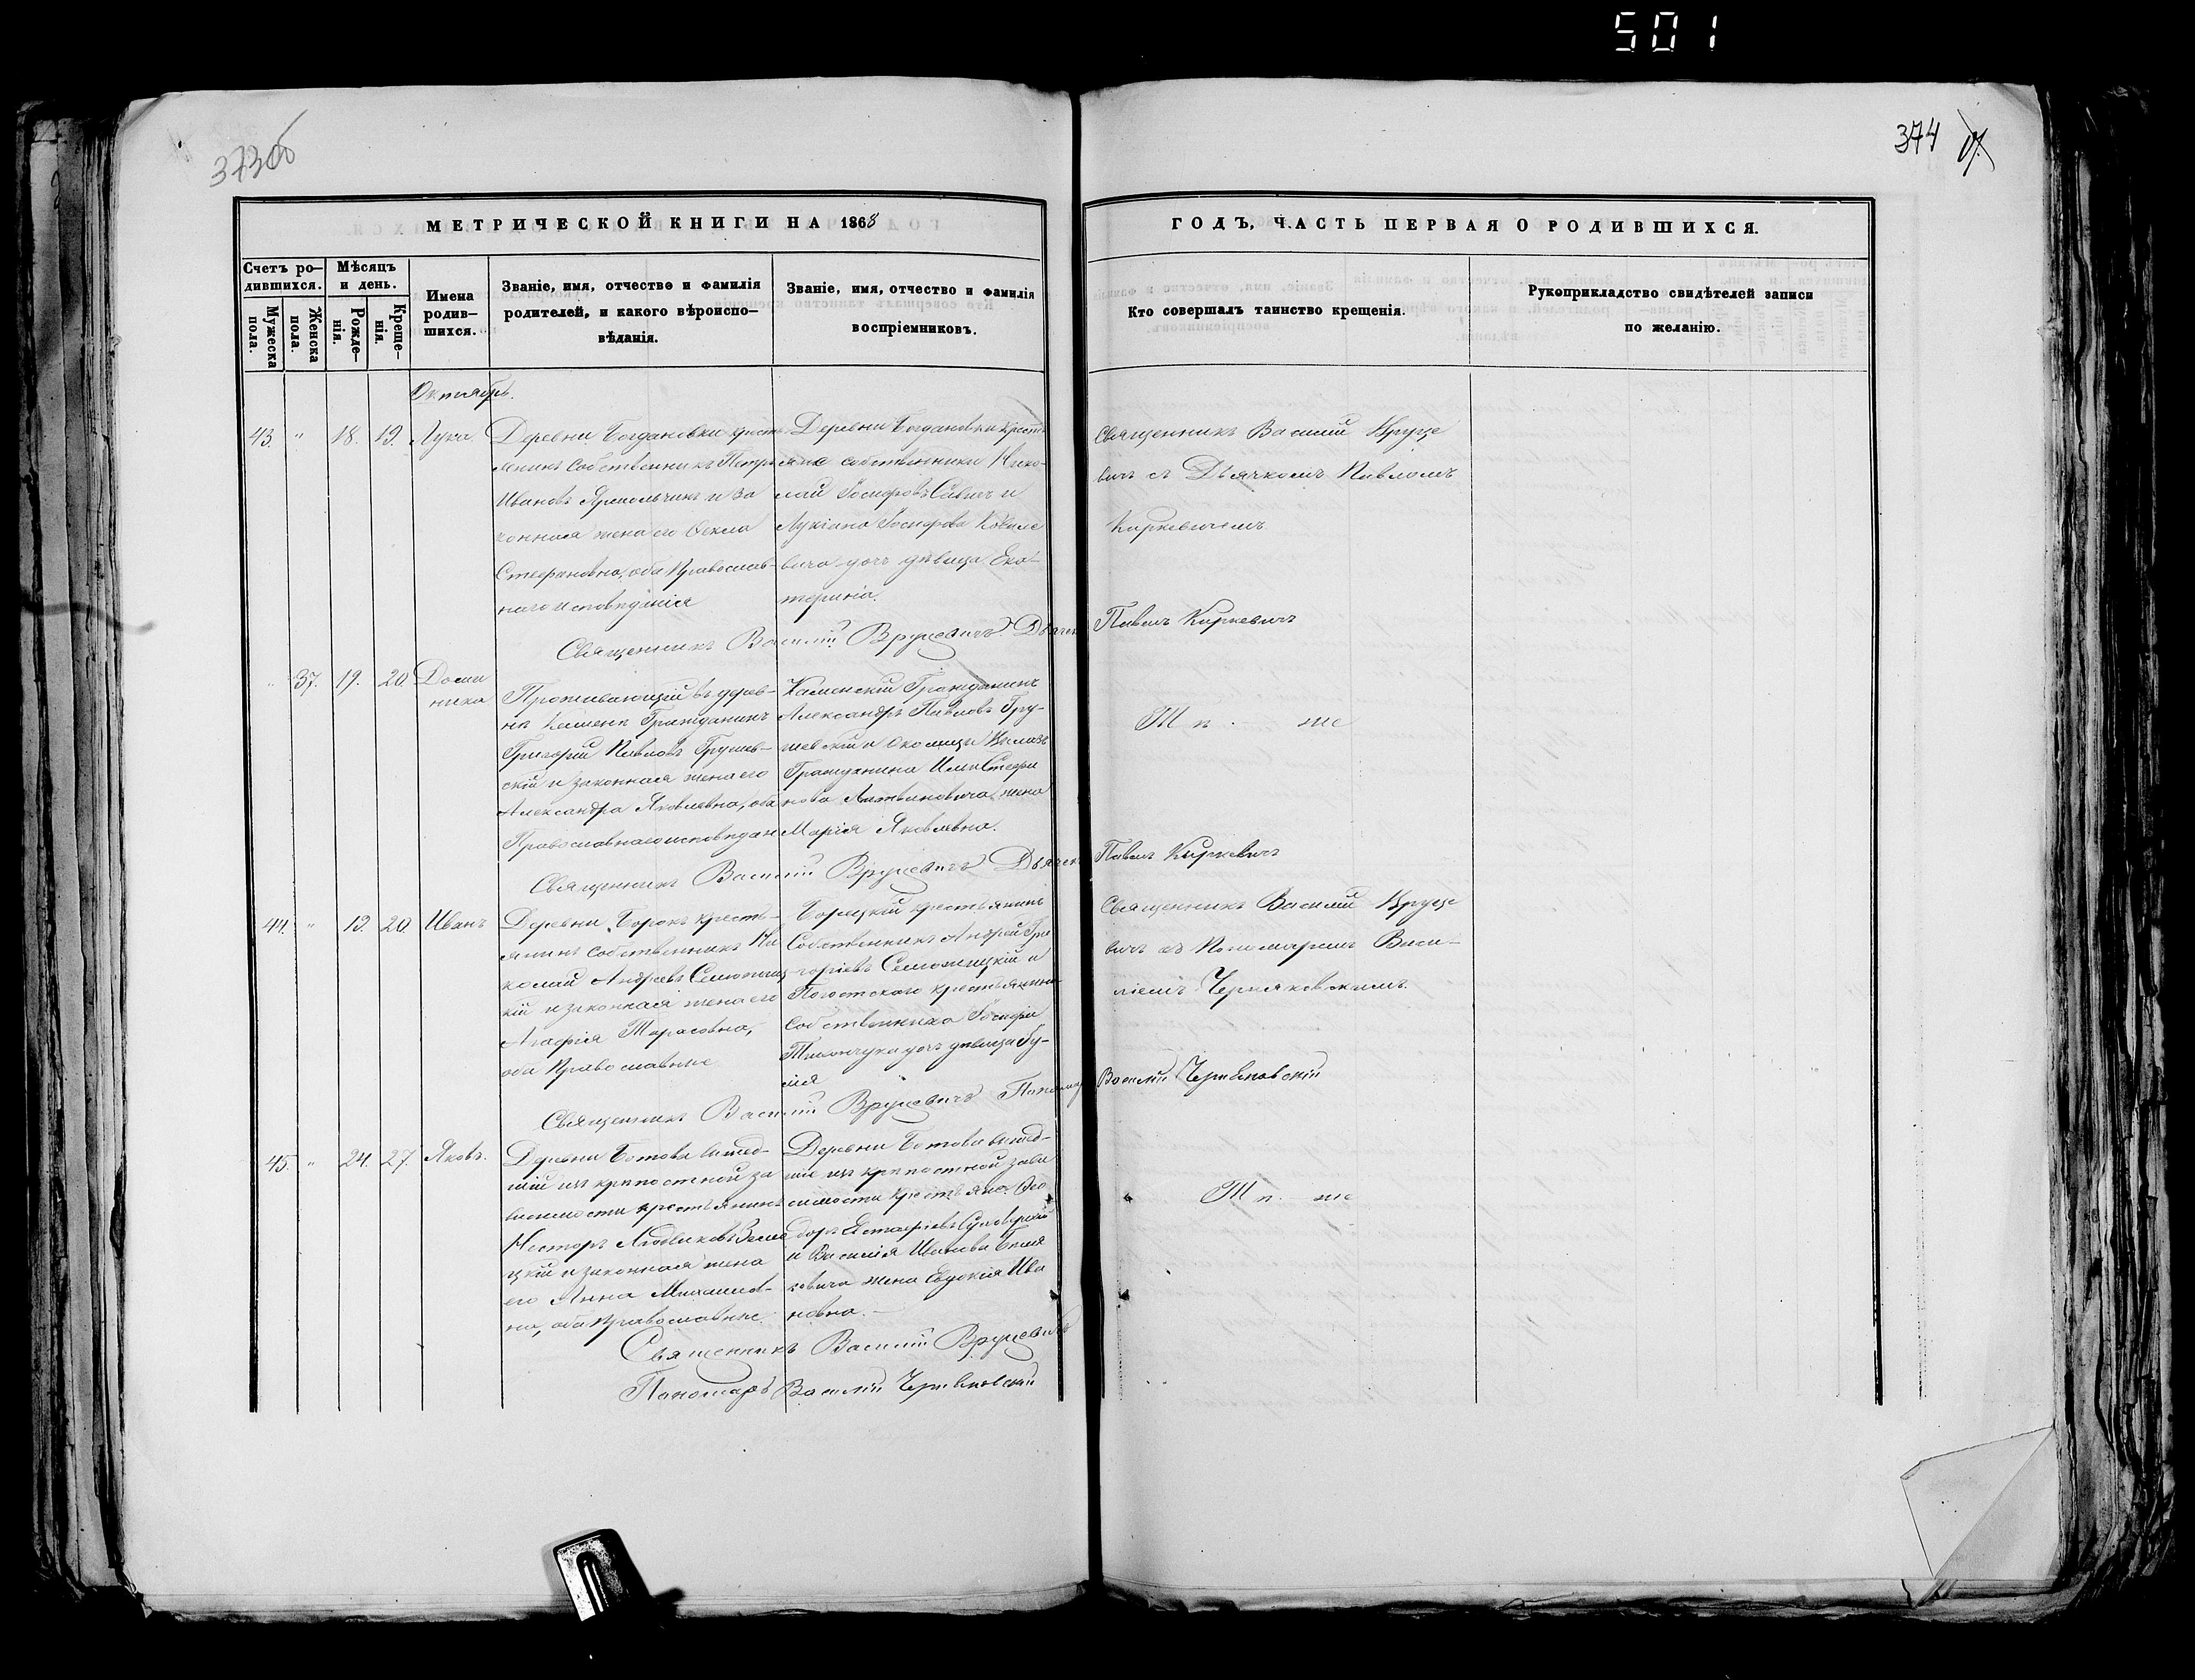 501
373об
374
МЕТРИЧЕСКОЙ КНИГИ НА 1868
ГОДЪ, ЧАСТЬ ПЕРВАЯ О РОДИВШИХСЯ.
Счетъ ро-
дившихся.
Мужеска
пола.
Женска
пола.
Мѣсяцъ
и день.
Рожде-
нія.
Креще-
нія.
Имена
родив-
шихся.
Званіе, имя, отчество и фамилія
родителей, и какого вѣроиспо-
вѣданія.
Званіе, имя, отчество и фамилія
воспріемниковъ.
Кто совершалъ таинство крещенія.
Рукоприкладство свидѣтелей записи
по желанію.
Октябрь.
43. " 18. 19. Лука
Деревни Богдановки кресть
янинъ собственникъ Петръ
Ивановъ Ярмольчикъ и за
конная жена его Ѳекла
Стефановна, оба Православ-
наго исповѣданія
Деревни Богдановки кресть
яне собственники Нико-
лай Іосифовъ Савич и
Лукіана Іосифова
вича дочь дѣвица Ека-
терина.
Священникъ Василій Вруце
вичъ съ Дьячкомъ Павломъ
Киркевичемъ
Священникъ Василій Вруцевичъ. Дьячекъ Павелъ Киркевичъ
" 37. 19. 20. Доми
ника
Проживающій въ дерев-
нѣ Камень Гражданинъ
Григорій Павловъ Грушев-
скій и законная жена его
Александра Яковлевна, оба
Православнаго исповѣдан
Каменскій Гражданинъ
Александръ Павловъ Гру-
шевскій и Околицы
Гражданина Ильи Стефа
нова Литвиновича жена
Марія Яковлевна.
Тѣ - же
Священникъ Василій Вруцевичъ Дьячекъ Павелъ Киркевичъ
44. " 19. 20. Иванъ
Деревни Борокъ кресть-
янинъ собственникъ Ни
колай Андреевъ
кій и законная жена его
Агафія Тарасовна,
оба Православные
Борецкій крестьянинъ
Собственникъ Андрей Гри
горіевъ и
Погостскаго крестьянина
Собственника Іосифа
дочь дѣвица Іу-
лія
Священникъ Василій Вруце
вичъ съ Пономаремъ Васи-
ліемъ Черняковскимъ.
Священникъ Василій Вруцевичъ Пономарь Василій Черняковскій
45. " 24. 27. Яковъ.
Деревни Ботова вышед-
шій изъ крѣпостной за
висимости крестьянинъ
Несторъ
цкій и законная жена
его Анна Михайлов-
на, оба Православные.
Деревни Ботова вышед-
шіе изъ крѣпостной зави
симости крестьяне: Ѳео
доръ Евстафіевъ
и Василія Иванова
жена Евдокія Ива
новна.
Тѣ - же
Священникъ Василій Вруцевичъ
Пономарь Василій Черняковскій